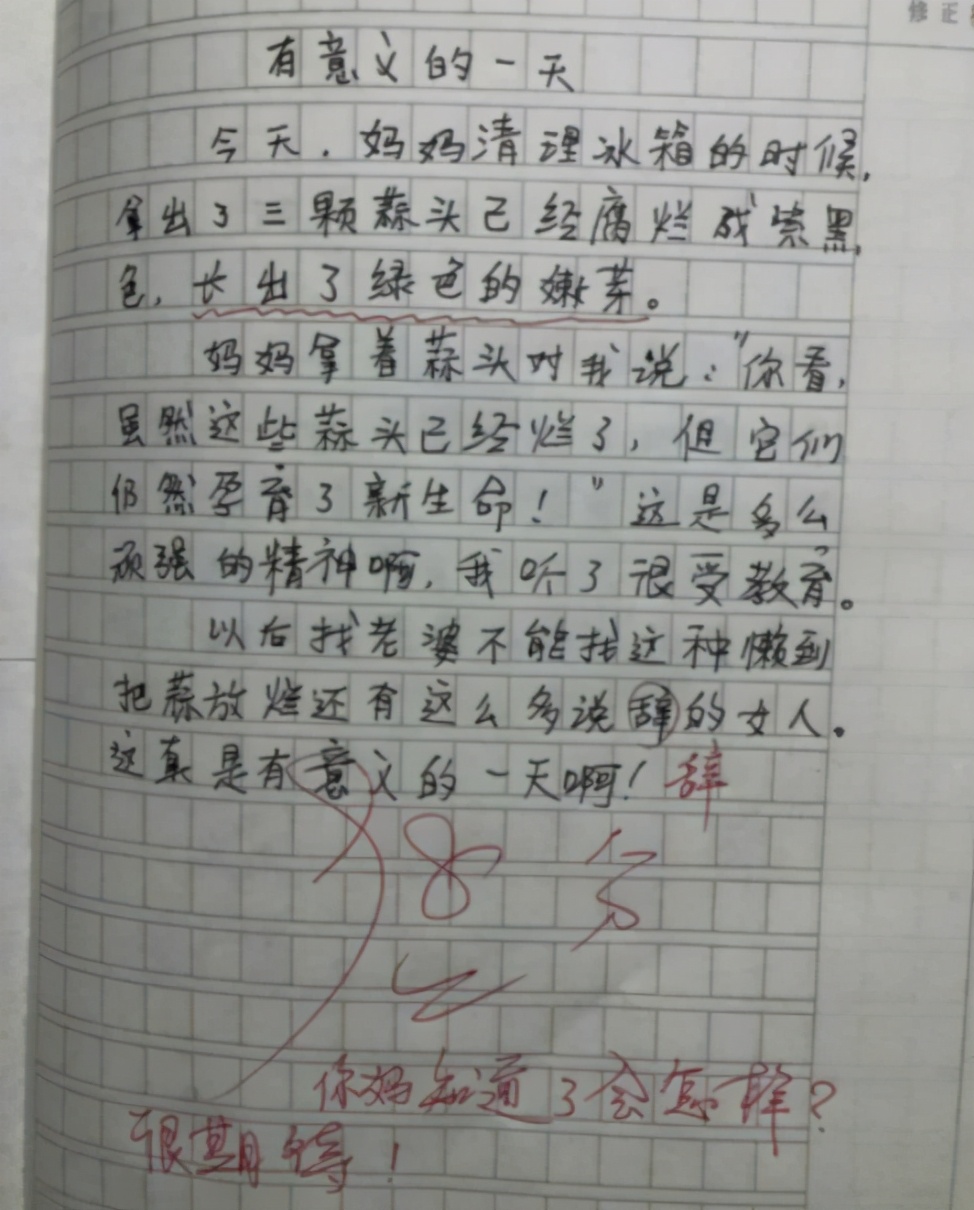 修正
有意义的一天
今天,妈妈清理冰箱的时候,
拿出了三颗蒜头已经腐烂成紫黑
色,长出了绿色的嫩芽。
妈妈拿着蒜头对我说:"你看,
虽然这些蒜头已经烂了,但它们
仍然孕育了新生命!"这是多么
顽强的精神啊,我听了很受教育。
以后找老婆不能找这种懒到
把蒜放烂还有这么多说辞的女人。
这真是有意义的一天啊!辞
98分
你妈知道了会怎样?
很期待!